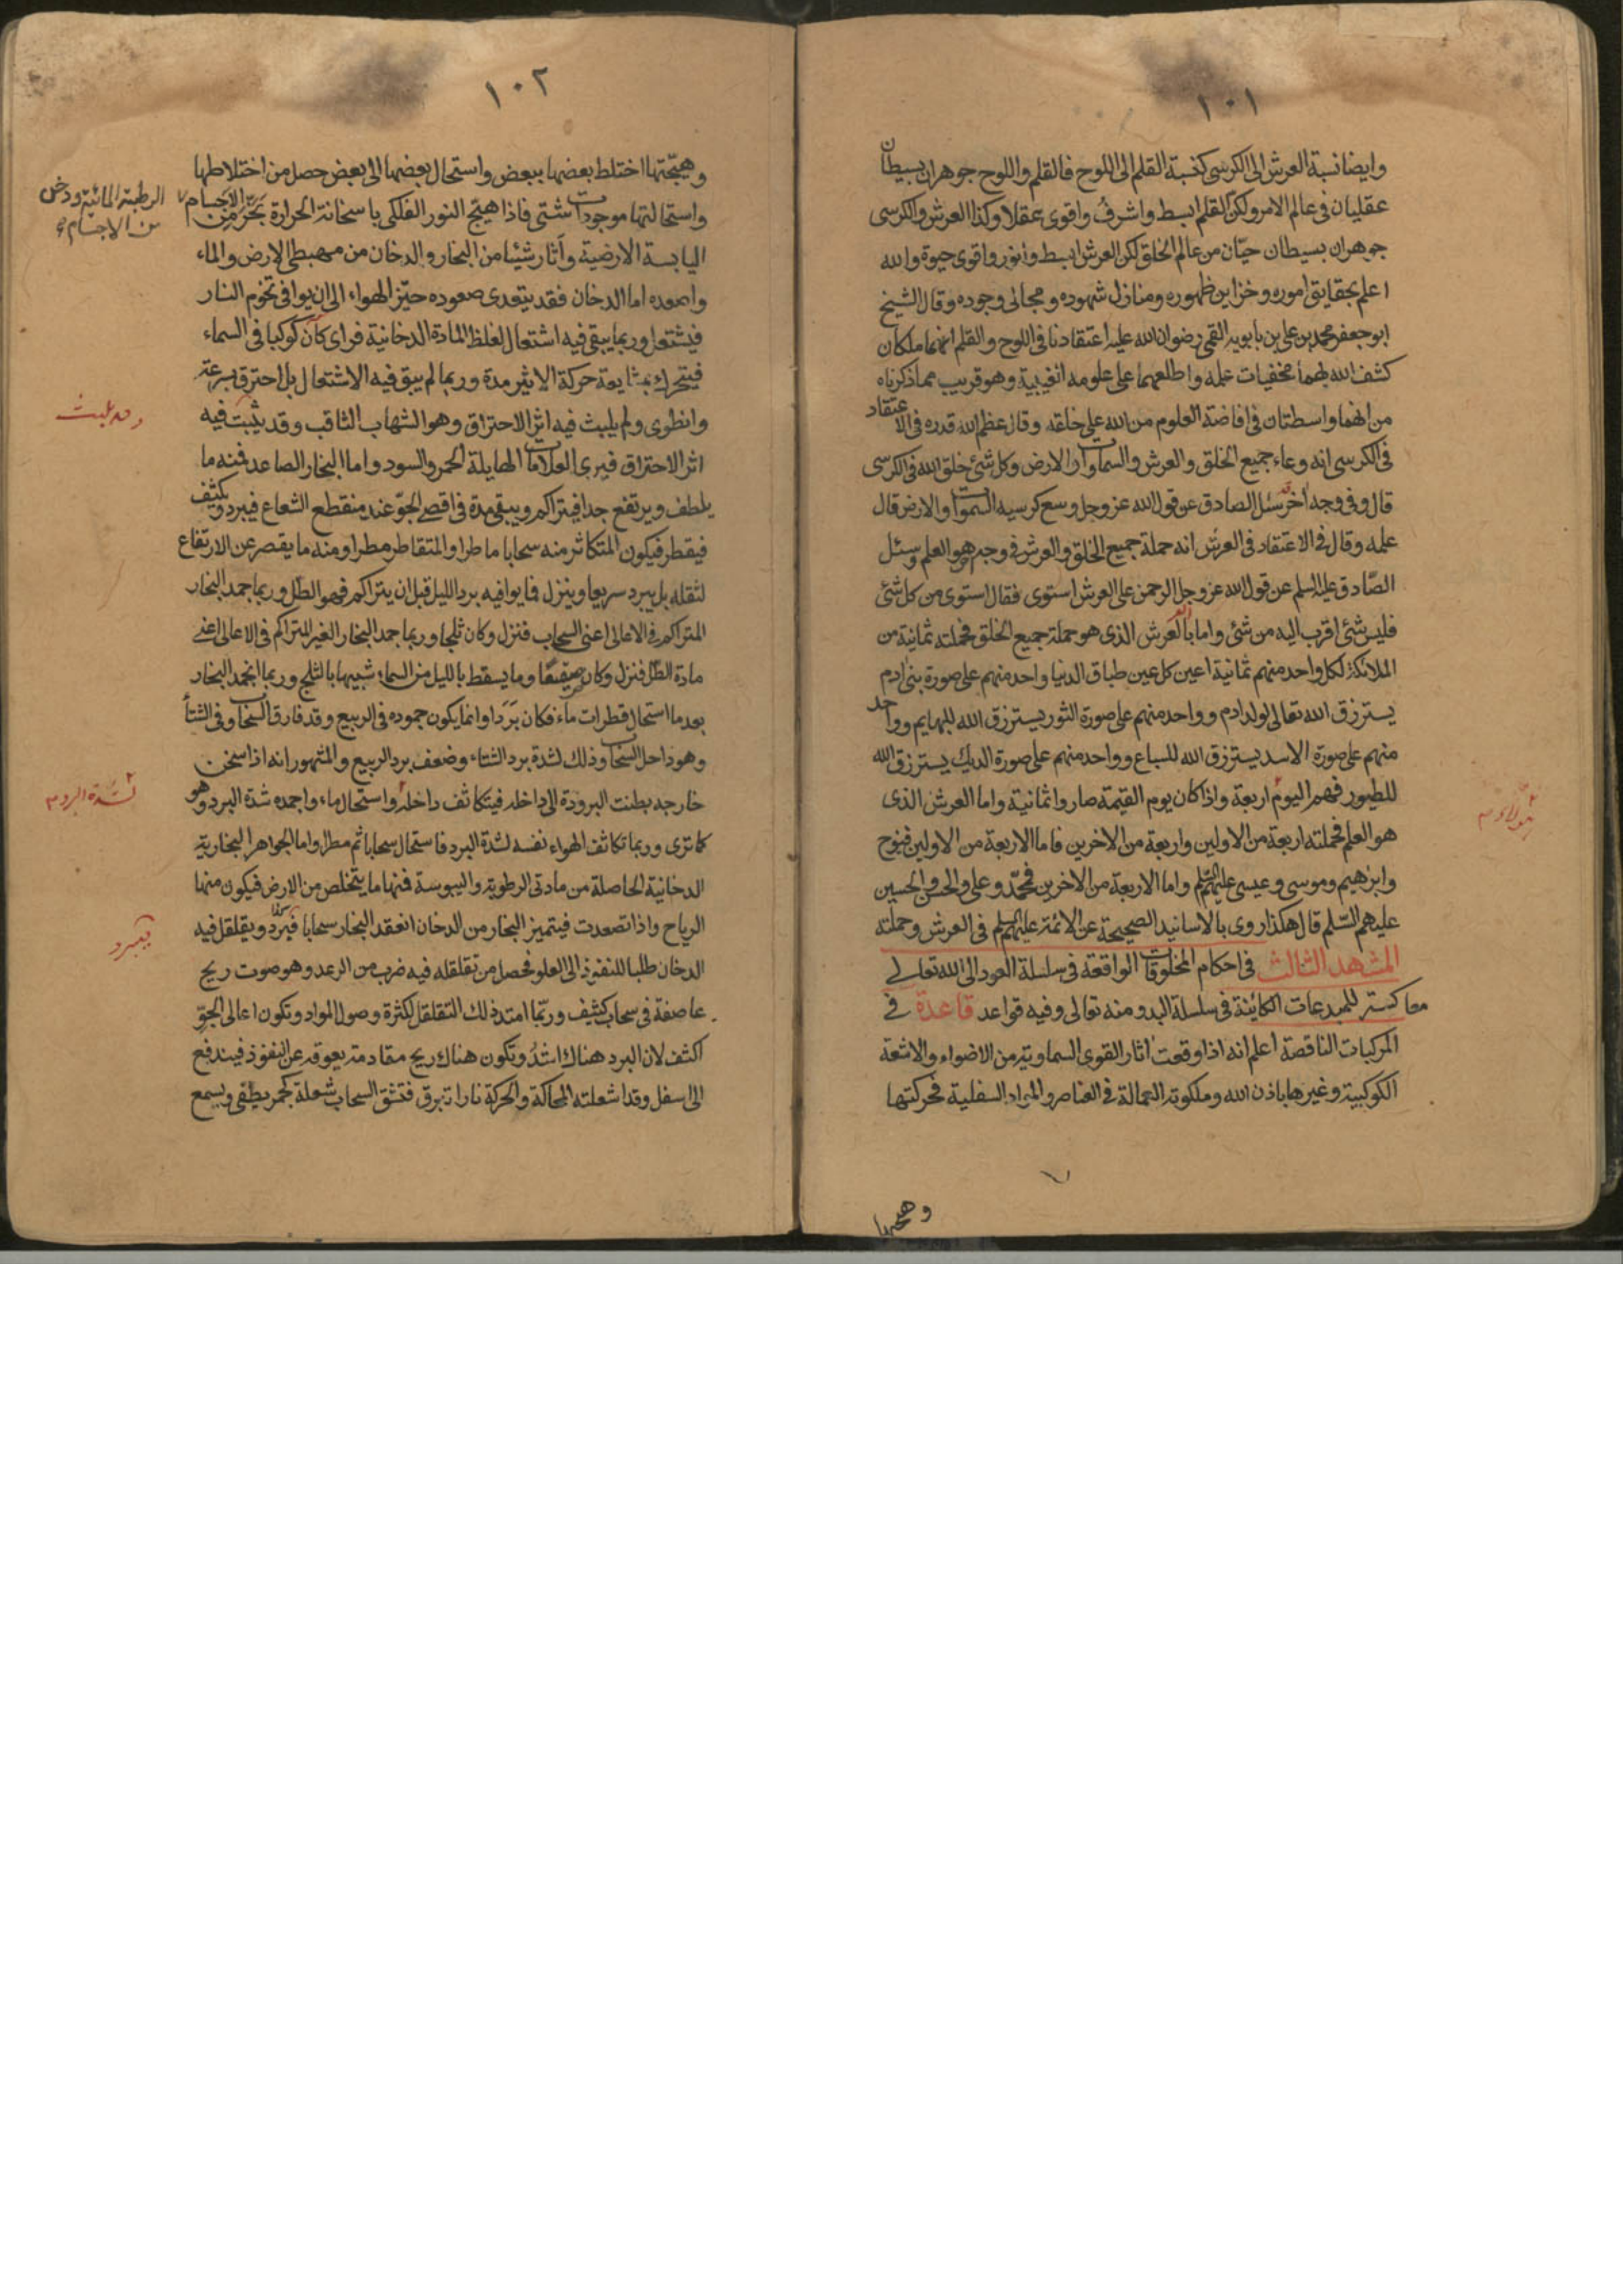 ١٠١
وايضا نسبة العرش الى الكرسى كنسبة القلم الى اللوح فالقلم واللوح جوهران بسيطان
عقليان فى عالم الامر ولكن القلم ابسط واشرف واقوى عقلا وكذا العرش والكرسى
جوهران بسيطان حيّان من عالم الخلق لكن العرش ابسط وانور واقوى حيوة والله
اعلم بحقايق اموره وخزاين ظهوره ومنازل شهوده ومجالى وجوده وقال الشيخ
ابو جعفر محمد بن على بن بابويه القمى رضوان الله عليه اعتقادنا فى اللوح والقلم انهما ملكان
كشف الله لهما مخفيات علمه واطلعهما على علومه الغيبية وهو قريب مما ذكرناه
من انهما واسطتان فى افاضة العلوم من الله على خلقه وقال عظم الله قدره فى الاعتقاد
فى الكرسى انه وعاء جميع الخلق والعرش والسماوات والارض وكل شئ خلق الله فى الكرسى
قال وفى وجه آخر سئل الصادق عن قول الله عز وجل وسع كرسيه السموات والارض قال
علمه وقال فى الاعتقاد فى العرش انه حملة جميع الخلق والعرش فى وجه هو العلم وسئل
الصّادق عليه السلم عن قول الله عز وجل الرحمن على العرش استوى فقال استوى من كل شئ
فليس شئ اقرب اليه من شئ واما بالعرش الذى هو حملة جميع الخلق فحملته ثمانية من
الملائكة لكل واحد منهم ثمانية اعين كل عين طباق الدنيا واحد منهم على صورة بنى ادم
يسترزق الله تعالى لولد ادم وواحد منهم على صورة الثور يسترزق الله للبهايم وواحد
منهم على صورة الاسد يسترزق الله للسباع وواحد منهم على صورة الديك يسترزق الله
للطيور فهم اليوم اربعة واذا كان يوم القيمة صاروا ثمانية واما العرش الذى
هو العلم فحملته اربعة من الاولين واربعة من الاخرين فاما الاربعة من الاولين فنوح
وابرهيم وموسى وعيسى عليهم السّلم واما الاربعة من الاخرين فمحمّد وعلى والحسن والحسين
عليهم السّلم قال هكذا روى بالاسانيد الصحيحة عن الائمة عليهم السلم فى العرش وحملته
المشهد الثالث فى احكام المخلوقات الواقعة فى سلسلة العود الى الله تعالى
معاكسة للمبدعات الكائنة فى سلسلة البدو منه تعالى وفيه قواعد قاعدة فى
المركبات الناقصة اعلم انه اذا وقعت اثار القوى السماوية من الاضواء والاشعة
الكوكبية وغيرها باذن الله وملكوته العمالة فى العناصر والمواد السفلية فحركتها
وهيجتها
١٠٢
وهيّجتها اختلط بعضها ببعض واستحال بعضها الى بعض حصل من اختلاطها
واستحالتها موجودات شتى فاذا هيّج النور الفلكى باسخانة الحرارة بخّر من الاجسام
الرطبة المائية ودخن
من الاجسام
اليابسة الارضية وآثار شيئا من البخار والدخان من مهبطى الارض والماء
واصعده اما الدخان فقد يتعدى صعوده حيّز الهواء الى ان يوافى تخوم النار
فيشتعل وربما يبقى فيه اشتعال لغلظ المادة الدخانية فراى كأن كوكبا فى السماء
فيتحرك بمشايعة حركة الاثير مدة وربما لم يبق فيه الاشتعال بل احترق بسرعة
وانطوى ولم يلبث فيه اثر الاحتراق وهو الشهاب الثاقب وقد يثبت فيه
وقد يلبث
اثر الاحتراق فيرى العلامات الهايلة الحمر والسود واما البخار الصاعد فمنه ما
يلطف ويرتفع جدا فيتراكم ويبقى مدة فى اقصى الجوّ عند منقطع الشعاع فيبرد ويكثف
فيقطر فيكون المتكاثر منه سحابا ماطرا والمتقاطر مطرا ومنه ما يقصر عن الارتفاع
لثقله بل يبرد سريعا وينزل فما يوافيه برد الليل قبل ان يتراكم فهو الطل وربما جمد البخار
المتراكم فى الاعالى اعنى السحاب فنزل وكان ثلجا وربما جمد البخار الغير المتراكم فى الاعالى اعنى
مادة الطل فنزل وكان صقيعا وما يسقط بالليل من السماء شبيها بالثلج وربما انجمد البخار
بعد ما استحال قطرات ماء فكان بَرَدا وانما يكون جموده فى الربيع وقد فارق السحاب وفى الشتأ
وهو داخل السحاب وذلك لشدة برد الشتاء وضعف برد الربيع والمشهور انه اذا سخن
خارجه بطنت البرودة الى داخله فيتكاثف داخله واستحال ماء واجمده شدة البرد وهو
كما ترى وربما تكاثف الهواء نفسه لشدة البرد فاستحال سحابا ثم مطرا واما الجواهر البخارية
الدخانية الحاصلة من مادتى الرطوبة واليبوسة فمنها ما يتخلص من الارض فيكون منها
الرياح واذا تصعدت فيتميز البخار من الدخان انعقد البخار سحابا فبرد ويقلقل فيه
فيبرد
الدخان طلبا للنفوذ الى العلو فحصل من تقلقله فيه ضرب من الرعد وهو صوت ريح
عاصفة فى سحاب كثيف وربّما امتد ذلك التقلقل لكثرة وصول المواد وتكون اعالى الجوّ
اكثف لان البرد هناك اشدُّ وتكون هناك ريح مقادمة يعوقه عن النفوذ فيندفع
الى اسفل وقد اشعلته المحاكة والحركة نارا تبرق فتشق السحاب شعلة كجمر يطفى ويسمع